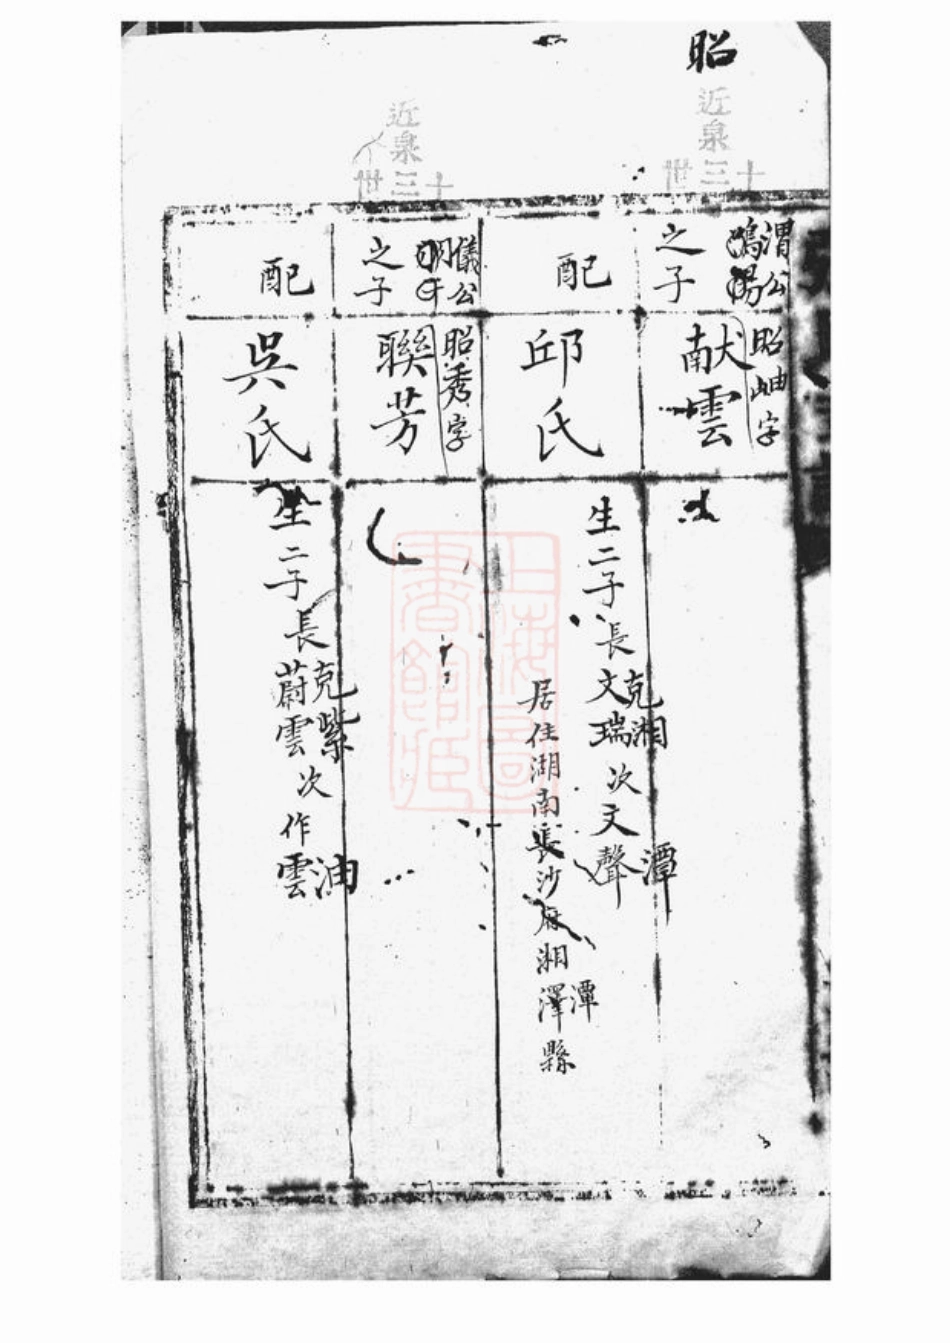 昭
近泉
十三世
渭公
鳴陽
之子
昭岫字
献雲
配
邱氏
生二子長文瑞次文聲
克湘
潭
居住湖南長沙府湘澤縣
潭
近泉
十三世
儀公
之子
昭秀字
聯芳
配
吳氏
生二子長蔚雲次作雲
克紫
油
上海圖書館藏